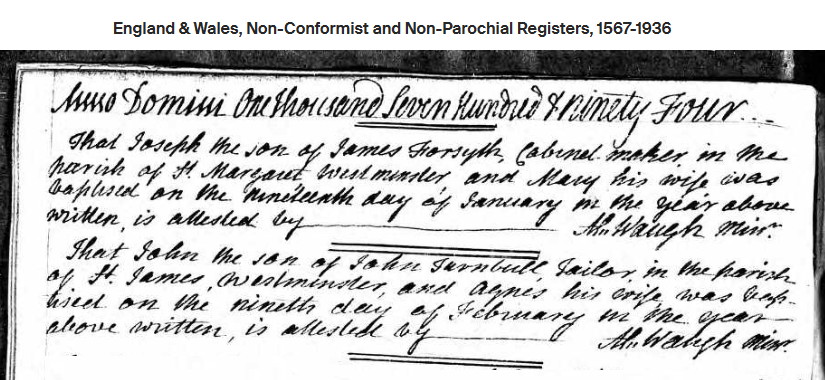 England & Wales, Non-Conformist and Non-Parochial Registers, 1567-1936
Anno Domini One thousand Seven Hundred & Ninety Four
That Joseph the son of James Forsyth, Cabinet maker, in the
parish of St. Margaret Westminster, and Mary his wife was
baptised on the nineteenth day of January in the year above
written, is attested by Waugh Minr.
That John the son of John Turnbull, Tailor, in the parish
of St. James, Westminster, and Agnes, his wife was bap-
tised on the nineth day of February in the year
above written, is attested by Waugh Minr.